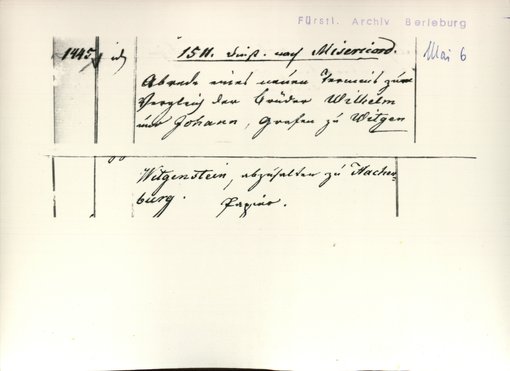 Fürstl. Archiv Berleburg
1445
1511. Dinst. nach Misericord.
Mai 6
Abrede eines neuen Termins zum
Vergleich der Brüder Wilhelm
und Johann, Grafen zu Witgen
Witgenstein, abzuhalten zu Hachen-
burg. Papier.